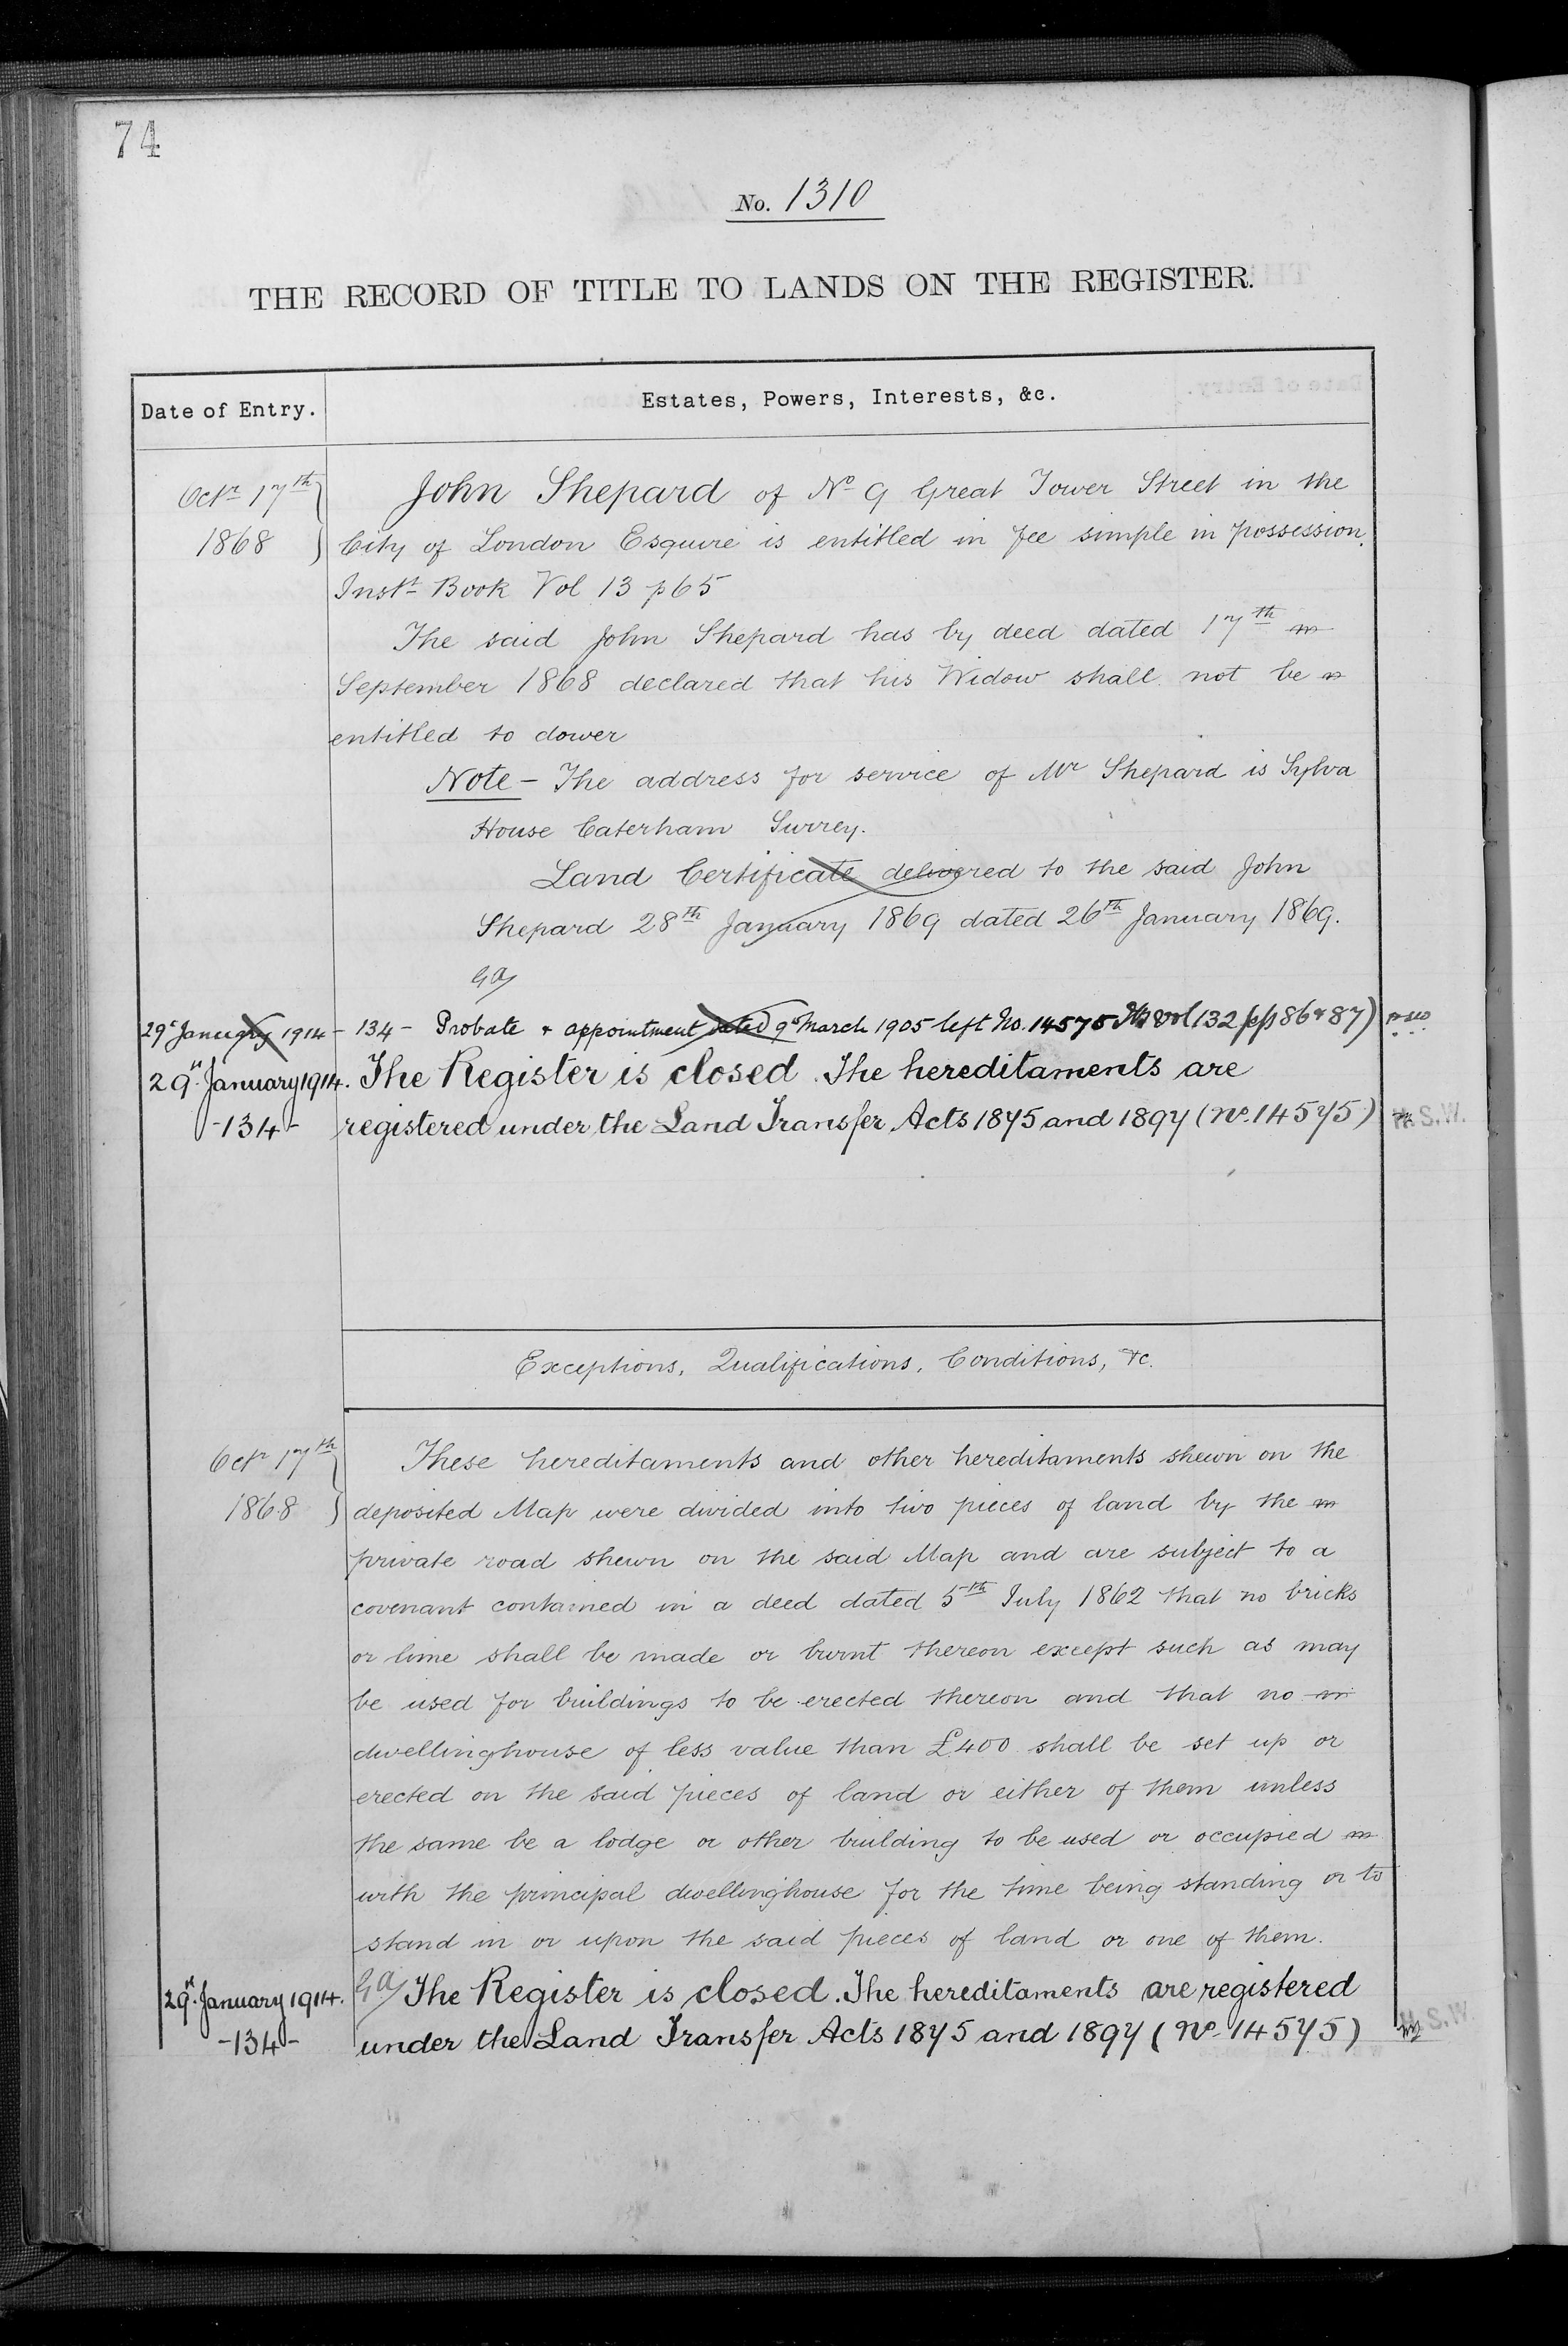 74
No. 1310
THE RECORD OF TITLE TO LANDS ON THE REGISTER.
Date of Entry.
Estates, Powers, Interests, &c.
Octr 17th 1868
John Shepard of No 9 Great Tower Street in the
City of London Esquire is entitled in fee simple in possession.
Inst. Book Vol 13 p65
The said John Shepard has by deed dated 17th
September 1868 declared that his Widow shall not be
entitled to dower
Note – The address for service of Mr Shepard is Sylva
House Caterham Surrey.
Land Certificate delivered to the said John
Shepard 28th January 1869 dated 26th January 1869.
29th January 1914 – 134 – Probate & appointment dated 9th March 1905 left No. 14575 vol 132 pp 86 & 87)
29th January 1914. The Register is closed. The hereditaments are
-134- registered under the Land Transfer Acts 1875 and 1897 (No. 14575) S.W.
Exceptions, Qualifications, Conditions, &c.
Octr 17th 1868
These hereditaments and other hereditaments shewn on the
deposited Map were divided into two pieces of land by the
private road shewn on the said Map and are subject to a
covenant contained in a deed dated 5th July 1862 that no bricks
or lime shall be made or burnt thereon except such as may
be used for buildings to be erected thereon and that no
dwellinghouse of less value than £400 shall be set up or
erected on the said pieces of land or either of them unless
the same be a lodge or other building to be used or occupied
with the principal dwellinghouse for the time being standing or to
stand in or upon the said pieces of land or one of them.
29th January 1914. The Register is closed. The hereditaments are registered
-134- under the Land Transfer Acts 1875 and 1897 (No. 14575) S.W.